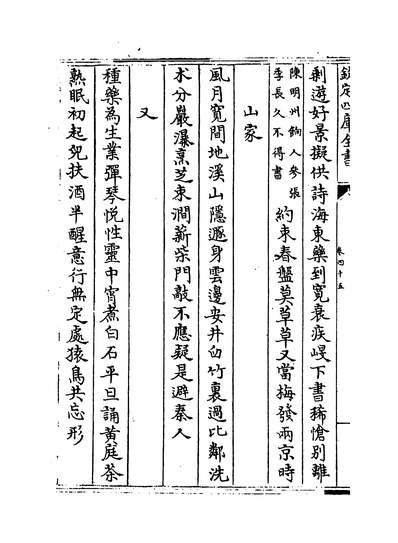 欽定四庫全書
卷四十五
剩遊好景擬供詩海東藥到寛衰疾下書稀愴別離
陳明州餉人參張
季長久不得書
約束春盤莫草草又當梅發兩京時
山家
風月寛間地溪山隱遯身雲邊安井臼竹裏過比鄰洗
术分巖瀑烹芝束澗薪柴門敲不應疑是避秦人
又
種藥為生業彈琴悦性靈中宵煮白石平旦誦黄庭茶
熟眠初起兒扶酒半醒意行無定處猿鳥共忘形